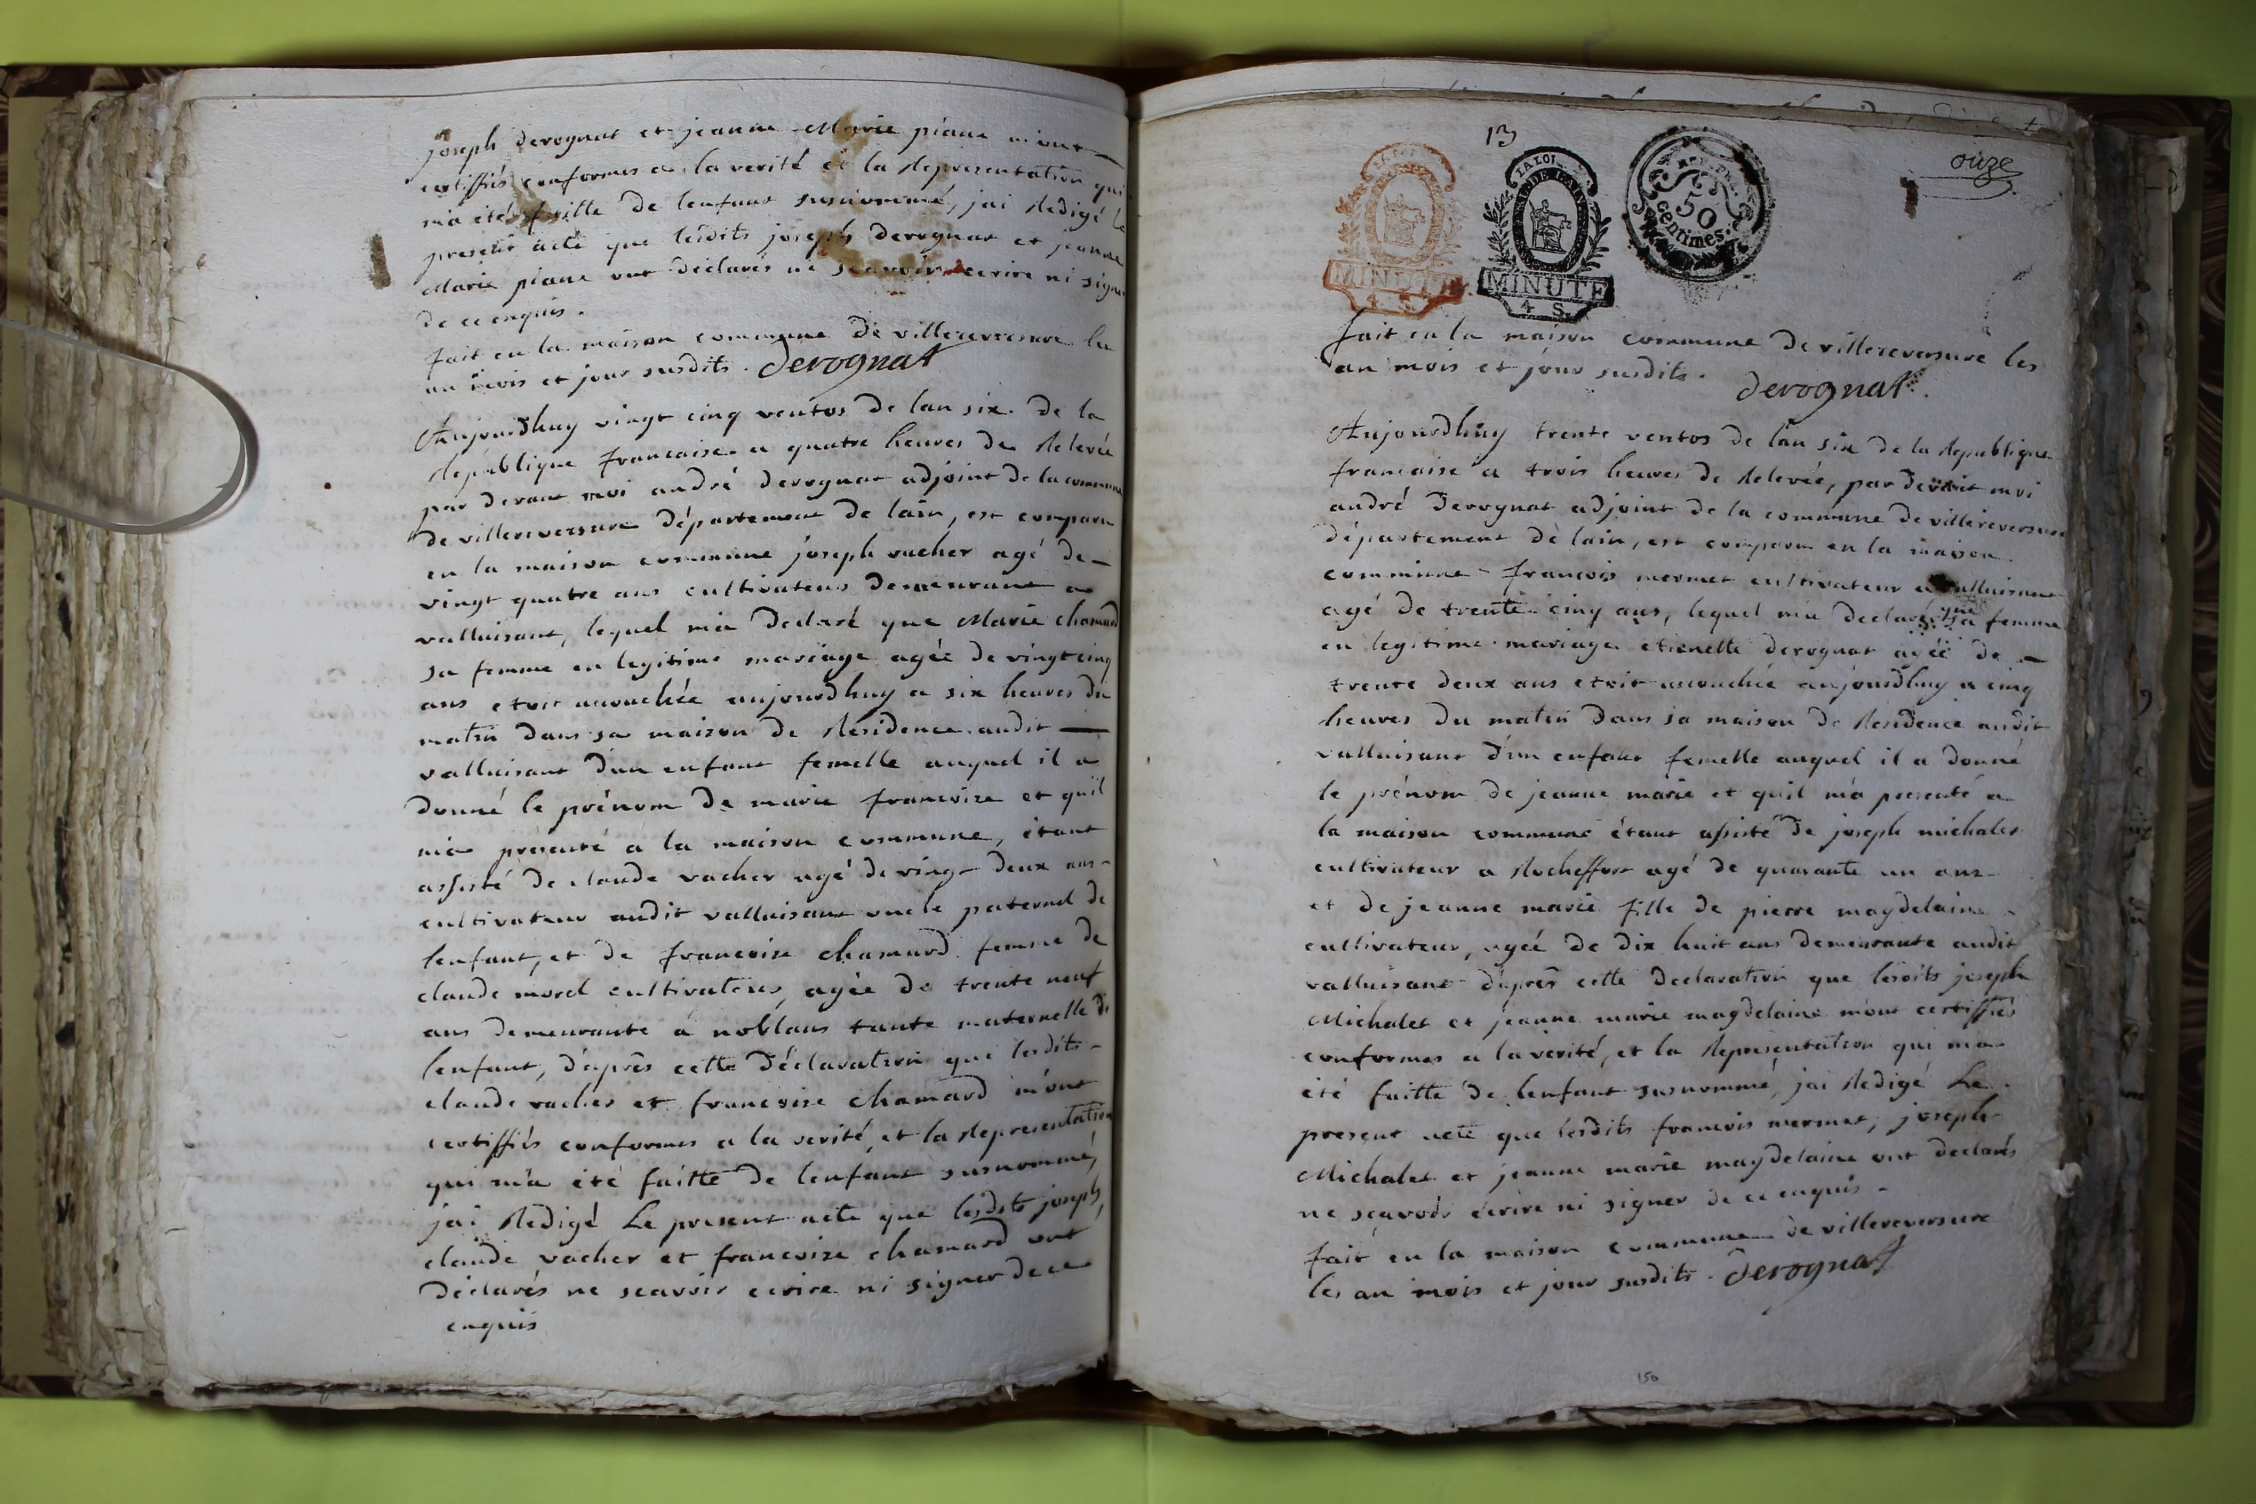 joseph derognat et jeanne Marie piane m'ont
certiffiés conformes a la verité et la Representation qui
m'a été faitte de lenfant susnommé, jai Redigé le
present acte que lesdits joseph derognat et jeanne
Marie piane ont déclarés ne sçavoir ecrire ni signer
de ce enquis.
fait en la maison commune de villereversure les
an mois et jour susdits. derognat
Aujourdhuy vingt cinq ventos de lan six de la
Republique francaise a quatre heures de Relevée
par devant moi andré derognat adjoint de la commune
de villereversure département de lain, est comparu
en la maison commune joseph vacher agé de
vingt quatre ans cultivateur demeurant a
valluisant, lequel m'a declaré que Marie chamard
sa femme en legitime mariage agée de vingt cinq
ans etoit accouchée aujourdhuy a six heures du
matin dans sa maison de Residence audit
valluisant d'un enfant femelle auquel il a
donné le prénom de marie francoise et qu'il
m'a présenté a la maison commune, étant
assisté de claude vacher agé de vingt deux ans
cultivateur audit valluisant oncle paternel de
lenfant, et de francoise chamard femme de
claude morel cultivateur, agée de trente neuf
ans demeurante a noblans tante maternelle de
lenfant, d'après cette déclaration que lesdits
claude vacher et francoise chamard m'ont
certiffiés conformes a la verité, et la Representation
qui m'a été faitte de lenfant susnommé,
jai Redigé Le present acte que lesdits joseph,
claude vacher et francoise chamard ont
déclarés ne scavoir ecrire ni signer de ce
enquis
13
onze
LA LOI
MINUTE
4 S.
LA LOI
MINUTE
4 S.
50
centimes.
fait en la maison commune de villereversure les
an mois et jour susdits. derognat.
Aujourdhuy trente ventos de lan six de la Republique
francaise a trois heures de Relevée, par devant moi
andré derognat adjoint de la commune de villereversure
département de lain, est comparu en la maison
commune francois mermet cultivateur a valluisant
agé de trente cinq ans, lequel m'a declaré que sa femme
en legitime mariage etienette derognat agée de
trente deux ans etoit accouchée aujourdhuy a cinq
heures du matin dans sa maison de Residence audit
valluisant d'un enfant femelle auquel il a donné
le prénom de jeanne marie et qu'il m'a presenté a
la maison commune étant assisté de joseph michalet
cultivateur a Rocheffort agé de quarante un ans
et de jeanne marie fille de pierre magdelaine
cultivateur, agée de dix huit ans demeurante audit
valluisant d'après cette declaration que lesdits joseph
Michalet et jeanne marie magdelaine m'ont certiffiés
conformes a la verité, et la Representation qui m'a
été faitte de lenfant susnommé, jai Redigé Le
present acte que lesdits francois mermet, joseph
Michalet et jeanne marie magdelaine ont declarés
ne sçavoir écrire ni signer de ce enquis
fait en la maison commune de villereversure
les an mois et jour susdits. derognat
150